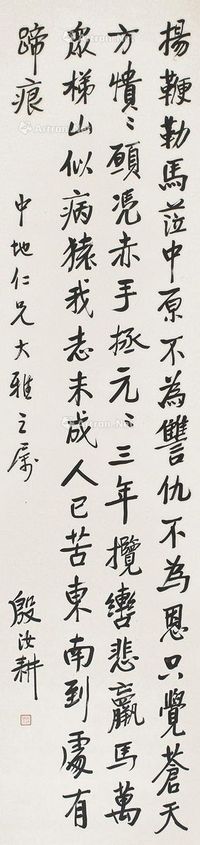 揚鞭勒馬蒞中原不為讐仇不為恩只覺蒼天
方憒〻願憑赤手拯元〻三年攬轡悲羸馬萬
眾梯山似病猿我志未成人已苦東南到處有
蹄痕
中地仁兄大雅之屬
殷汝耕